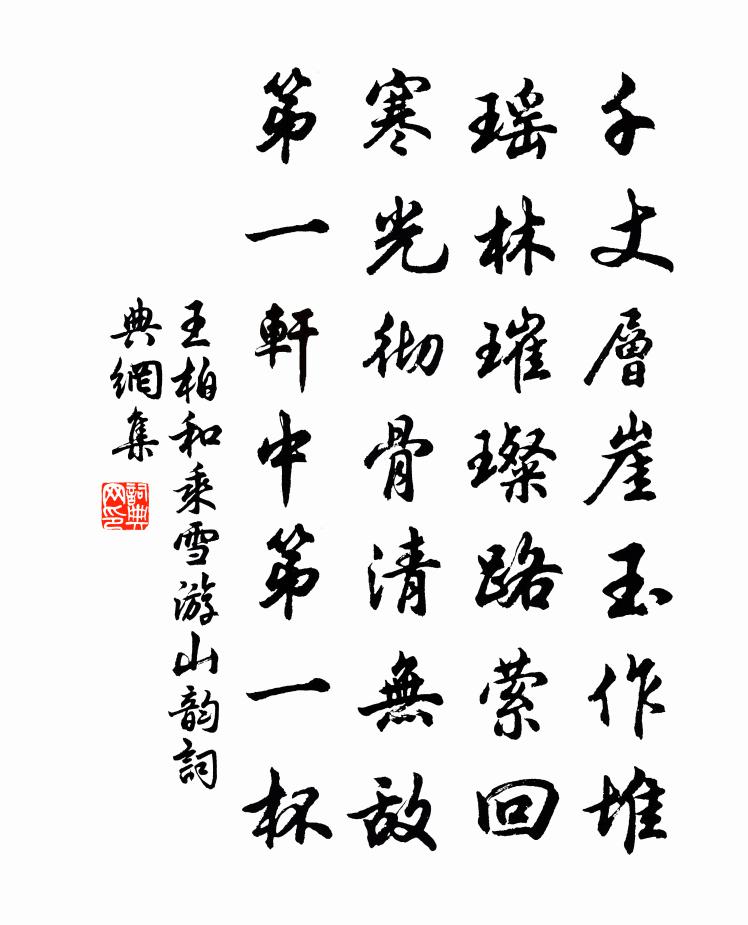 千丈層崖玉作堆
瑶林璀璨路萦回
寒光彻骨清無敌
第一軒中第一杯
王柏和乘雪游山韵詞
典網集
詞典网印